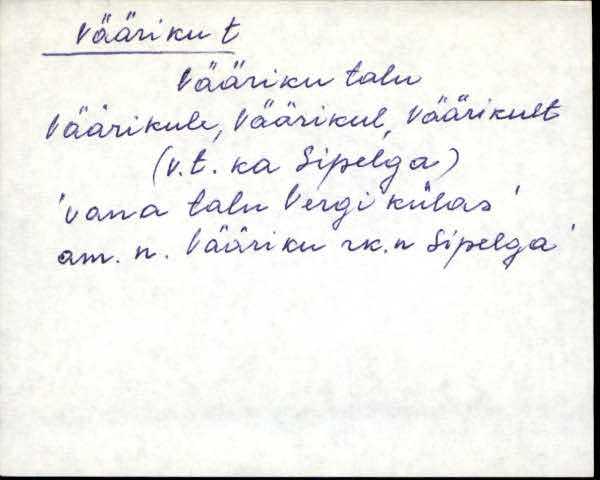 Vääriku t
Vääriku talu
Väärikule, Väärikul, Väärikult
(v.t. ka Sipelga)
'vana talu Vergi külas'
am. n. Vääriku rk.n Sipelga'